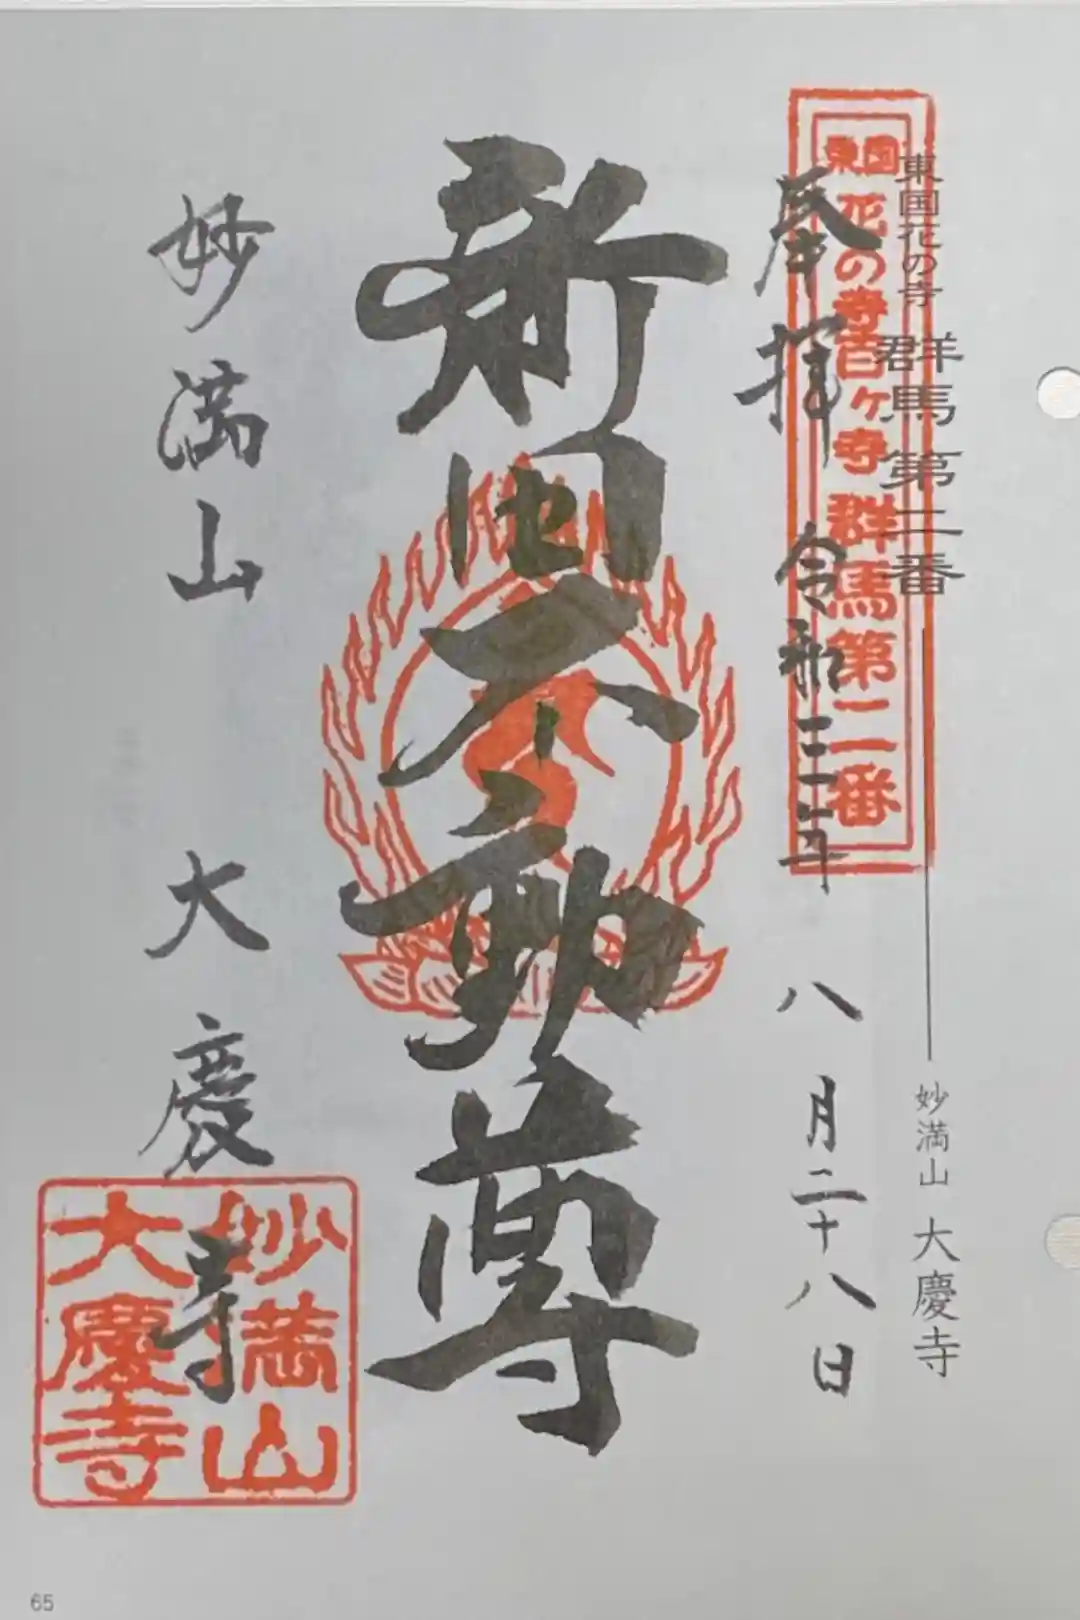 東国花の寺 群馬第二番 妙満山 大慶寺
東国 花の寺百ヶ寺 群馬第二番
奉拝 令和三年 八月二十八日
新 不動尊
妙満山 大慶寺
妙満山
大慶寺
65